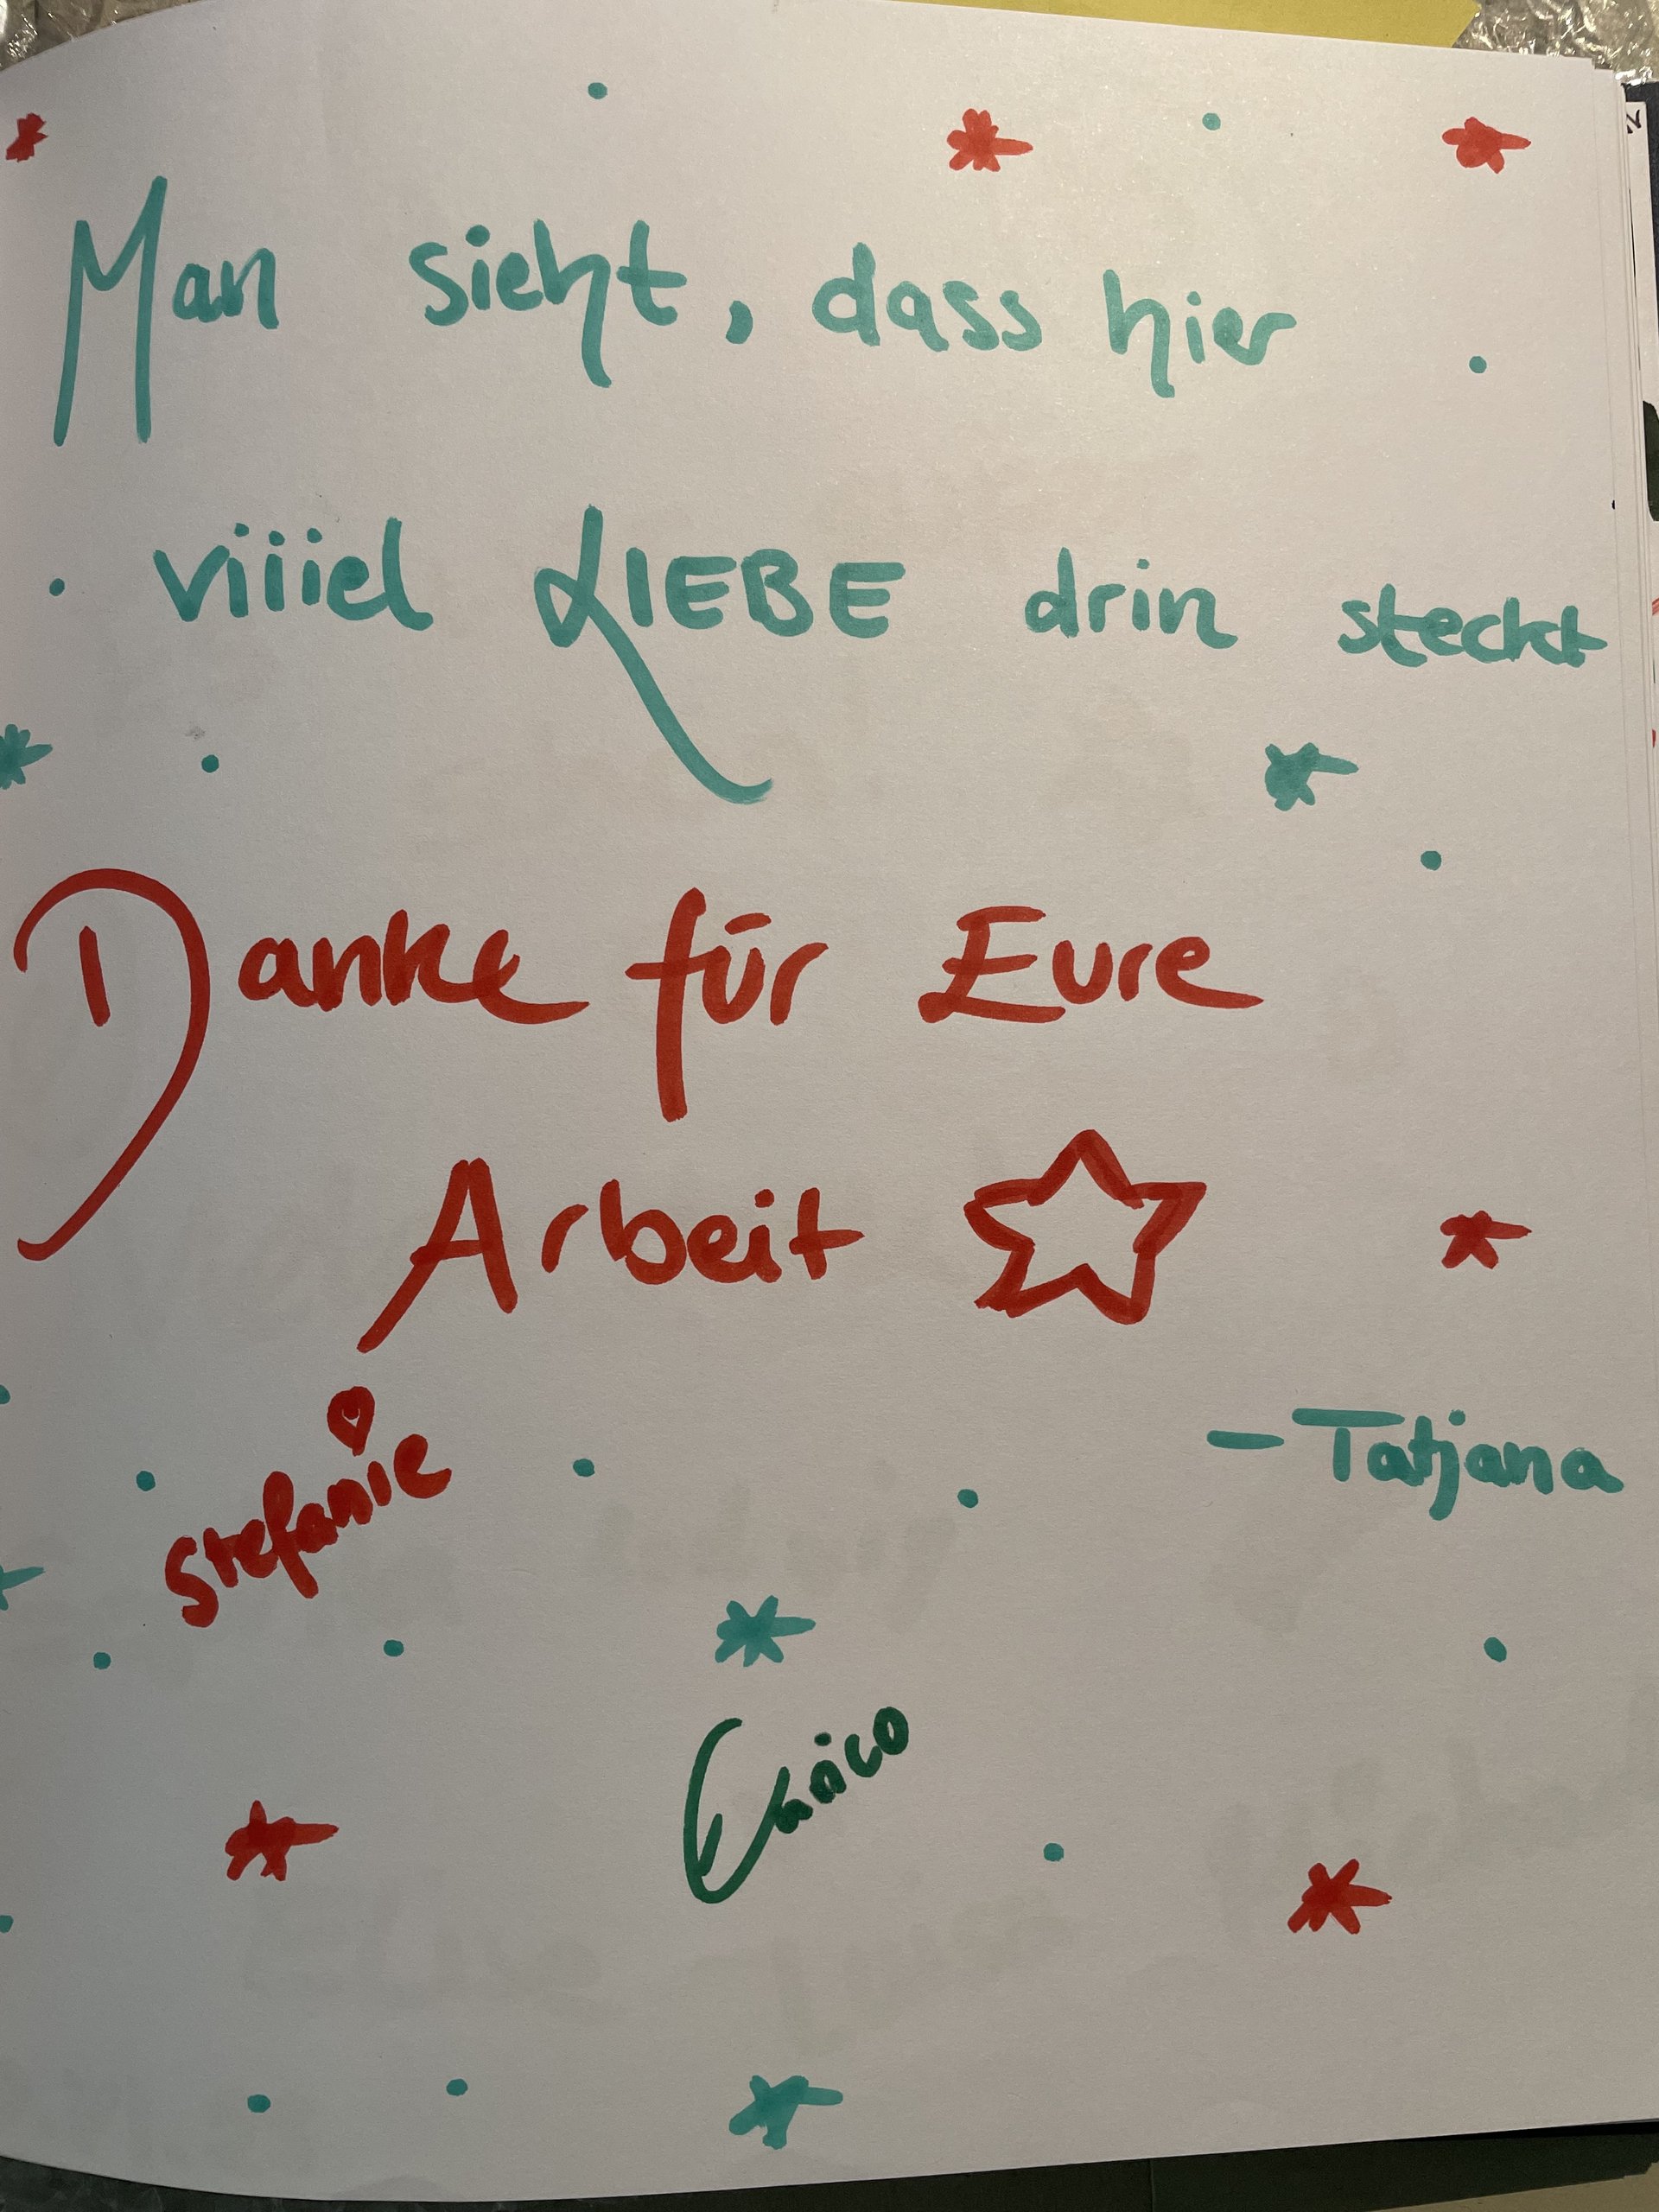 Man sieht, dass hier
viiiel LIEBE drin steckt
Danke für Eure
Arbeit
Stefanie
- Tatjana
Enrico